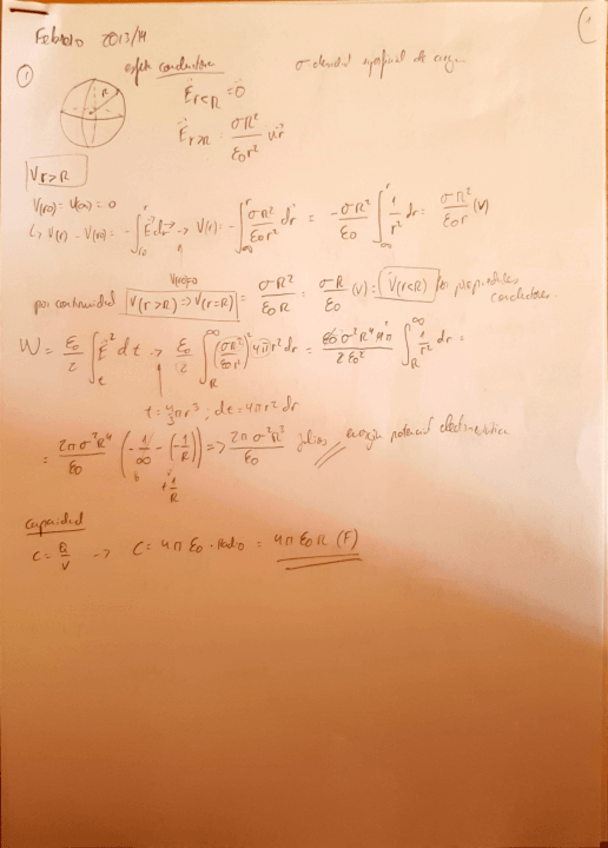 Febrero 2013/14
①
esfera conductora σ densidad superficial de carga
R
E⃗ r<R = 0⃗
E⃗ r>R = σR²/ε0r² u⃗r
V r>R
V(r0) = V(∞) = 0
↳ V(r) - V(r0) = -∫_{r0}^{r} E⃗ dr⃗ → V(r) = -∫_{∞}^{r} σR²/ε0r² dr = -σR²/ε0 ∫_{∞}^{r} 1/r² dr = σR²/ε0r (V)
V(r0)=0
por continuidad V(r>R) => V(r=R) = σR²/ε0R = σR/ε0 (V) = V(r<R) por propiedades conductores.
W = ε0/2 ∫_t E⃗² dt → ε0/2 ∫_R^∞ (σR²/ε0r²)² 4πr² dr = ε0 σ²R⁴ 4π/2ε0² ∫_R^∞ 1/r² dr =
t = 4/3 πr³ ; dt = 4πr² dr
= 2πσ²R⁴/ε0 (-1/∞ - (-1/R)) => 2πσ²R³/ε0 julios energía potencial electrostática
+1/R
capacidad
C = Q/V → C = 4πε0 · Radio = 4πε0R (F)